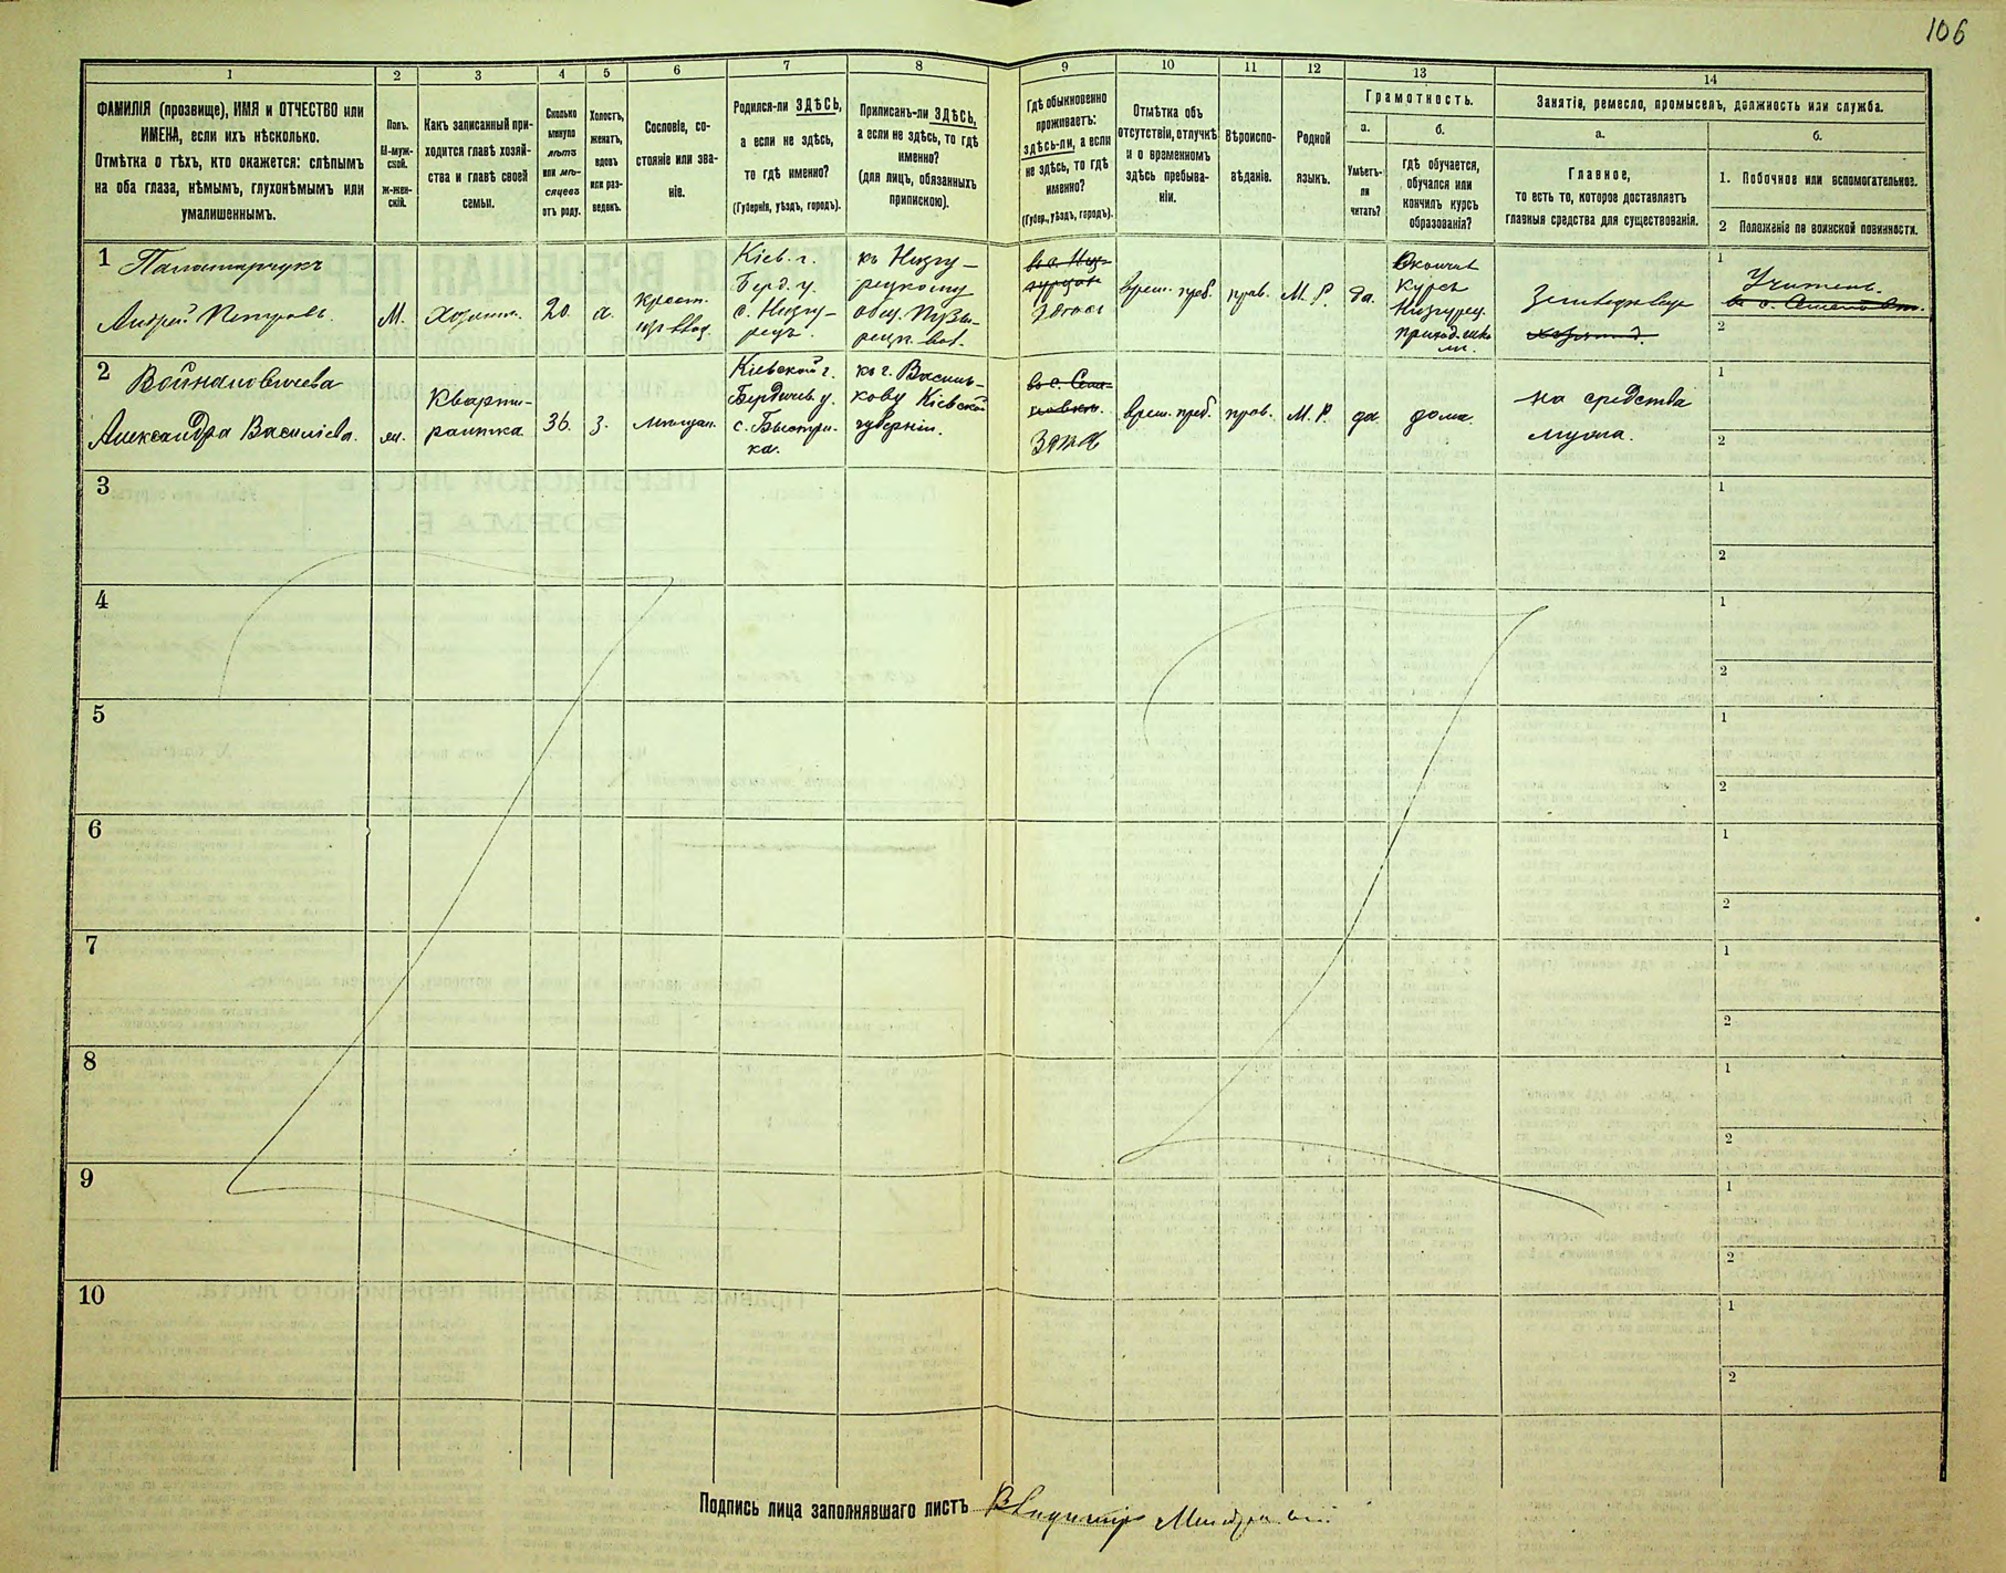 106
1
2
3
4
5
6
7
8
9
10
11
12
13
14
ФАМИЛІЯ (прозвище), ИМЯ и ОТЧЕСТВО или
ИМЕНА, если ихъ нѣсколько.
Отмѣтка о тѣхъ, кто окажется: слѣпымъ
на оба глаза, нѣмымъ, глухонѣмымъ или
умалишеннымъ.
Полъ.
М-муж-
ской.
ж-жен-
скій.
Какъ записанный при-
ходится главѣ хозяй-
ства и главѣ своей
семьи.
Сколько
минуло
лѣтъ
или мѣ-
сяцевъ
отъ роду.
Холостъ,
женатъ,
вдовъ
или раз-
веденъ.
Сословіе, со-
стояніе или зва-
ніе.
Родился-ли ЗДѢСЬ,
а если не здѣсь,
то гдѣ именно?
(Губернія, уѣздъ, городъ).
Приписанъ-ли ЗДѢСЬ,
а если не здѣсь, то гдѣ
именно?
(для лицъ, обязанныхъ
припискою).
Гдѣ обыкновенно
проживаетъ:
здѣсь-ли, а если
не здѣсь, то гдѣ
именно?
(Губер., уѣздъ, городъ).
Отмѣтка объ
отсутствіи, отлучкѣ
и о временномъ
здѣсь пребыва-
ніи.
Вѣроиспо-
вѣданіе.
Родной
языкъ.
Грамотность.
а.
Умѣетъ-
ли
читать?
б.
гдѣ обучается,
обучался или
кончилъ курсъ
образованія?
Занятіе, ремесло, промыселъ, должность или служба.
а.
Главное,
то есть то, которое доставляетъ
главныя средства для существованія.
б.
1. Побочное или вспомогательное.
2 Положеніе по воинской повинности.
1
Андрей Петровъ.
М.
20.
х.
крест.
Кіев. г.
Берд. у.
с. Низгу-
рецъ.
къ Низгу-
рецкому
здѣсь
прав.
М. Р.
да.
курсъ
1
Учитель.
2
2
Войналовичева
Александра Василіева.
ж.
Кварти-
рантка
36.
з.
мѣщан.
Кіевской г.
Бердичев. у.
с. Быстри-
ка.
къ г. Василь-
кову Кіевской
губерніи.
врем. преб.
прав.
М. Р.
да
дома.
на средства
мужа.
1
2
3
1
2
4
1
2
5
1
2
6
1
2
7
1
2
8
1
2
9
1
2
10
1
2
Подпись лица заполнявшаго листъ